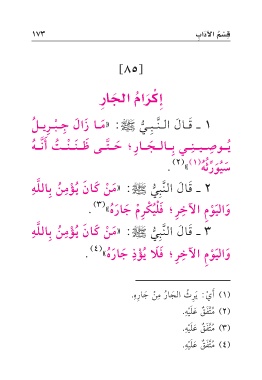 قِسْمُ الآدَابِ ١٧٣
[٨٥]
إِكْرَامُ الجَارِ
١ ـ قَالَ النَّبِيُّ ﷺ: «مَا زَالَ جِبْرِيلُ
يُوصِينِي بِالجَارِ؛ حَتَّى ظَنَنْتُ أَنَّهُ
سَيُوَرِّثُهُ(١)»(٢).
٢ ـ قَالَ النَّبِيُّ ﷺ: «مَنْ كَانَ يُؤْمِنُ بِاللَّهِ
وَاليَوْمِ الآخِرِ؛ فَلْيُكْرِمْ جَارَهُ»(٣).
٣ ـ قَالَ النَّبِيُّ ﷺ: «مَنْ كَانَ يُؤْمِنُ بِاللَّهِ
وَاليَوْمِ الآخِرِ؛ فَلَا يُؤْذِ جَارَهُ»(٤).
(١) أَيْ: يَرِثُ الجَارُ مِنْ جَارِهِ.
(٢) مُتَّفَقٌ عَلَيْهِ.
(٣) مُتَّفَقٌ عَلَيْهِ.
(٤) مُتَّفَقٌ عَلَيْهِ.